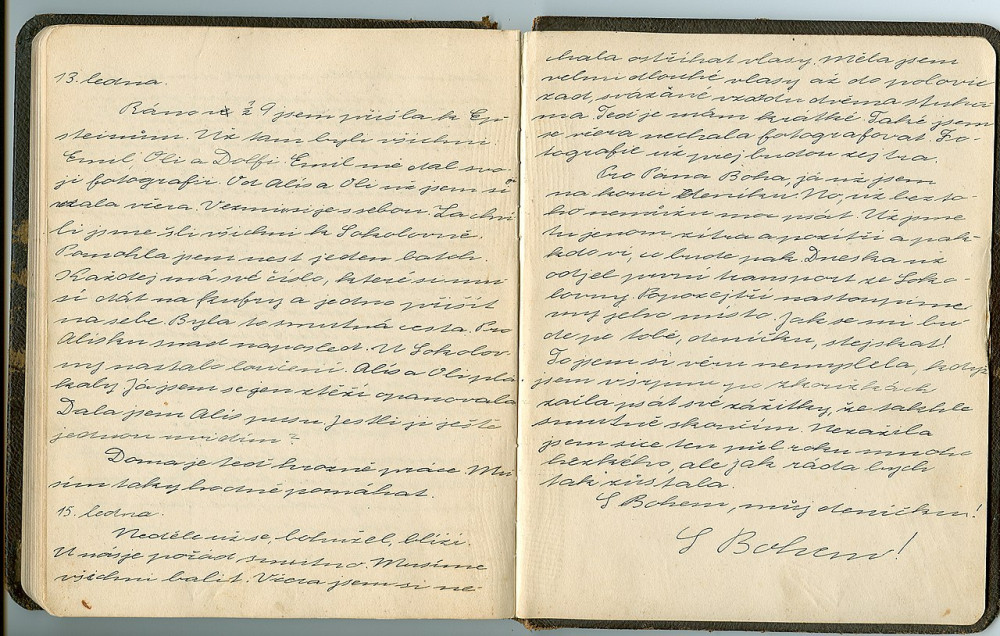 13. ledna.
Ráno v ½ 9 jsem přišla k Ep-
steinům. Už tam byli všichni.
Emil, Oli a Dolfi. Emil mě dal svo-
ji fotografii. Od Alis a Oli už jsem si
vzala včera. Vezmu si je s sebou. Za chví-
li jsme šli všichni k Sokolovně.
Pomohla jsem nest jeden batoh.
Každej má své číslo, které si mu-
sí dát na kufry a jedno přišít
na sebe. Byla to smutná cesta. Pro
Alisku snad naposled. U Sokolov-
ny nastalo loučení. Alis a Oli pla-
kaly. Já jsem se jen ztěží opanovala.
Dala jsem Alis pusu. Jestli ji ještě
jednou uvidím?
Doma je teď hrozně práce. Mu-
sím taky hodně pomáhat.
15. ledna.
Neděle už se, bohužel, blíží.
U nás je pořád smutno. Musíme
všichni balit. Včera jsem si ne-
chala ostříhat vlasy. Měla jsem
velmi dlouhé vlasy až do polovic
zad, svázané vzadu dvěma stuha-
ma. Teď je mám krátké. Také jsem
se včera nechala fotografovat. Fo-
tografie už prej budou zejtra.
Pro Pána Boha, já už jsem
na konci deníku. No, už bez to-
ho nemůžu moc psát. Už jsme
tu jenom zítra a pozítří a pak
kdo ví, co bude pak. Dneska už
odjel první transport ze Soko-
lovny. Popozejtří nastoupíme
my jeho místo. Jak se mi bu-
de po tobě, deníčku, stejskat!
To jsem si věru nemyslela, když
jsem v srpnu po zkouškách
začla psát své zážitky, že takhle
smutně skončím. Nezažila
jsem sice ten půl roku mnoho
hezkého, ale jak ráda bych
tak zůstala.
S Bohem, můj deníčku!
S Bohem!